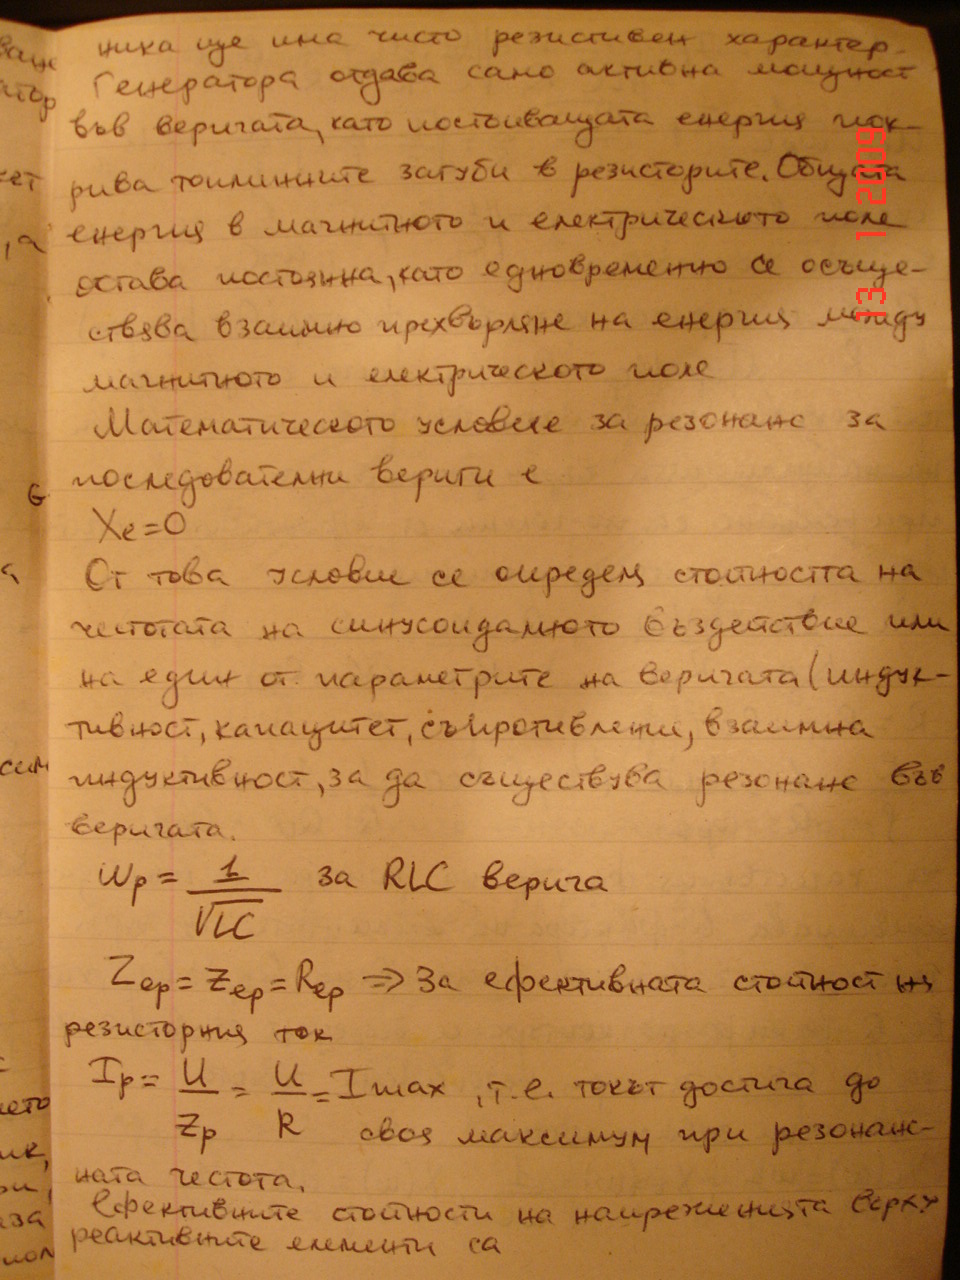 ника ще има чисто резистивен характер.
Генератора отдава само активна мощност
във веригата, като постъпващата енергия пок-
рива топлинните загуби в резисторите. Общата
енергия в магнитното и електрическото поле
остава постоянна, като едновременно се осъще-
ствява взаимно прехвърляне на енергия между
магнитното и електрическото поле
Математическото условие за резонанс за
последователни вериги е
Xe=0
От това условие се определя стойността на
честотата на синусоидалното въздействие или
на един от параметрите на веригата (индук-
тивност, капацитет, съпротивление, взаимна
индуктивност, за да съществува резонанс във
веригата.
ωp = 1/√LC за RLC верига
Zep = zep = Rep => За ефективната стойност на
резисторния ток
Ip = U/Zp = U/R = Imax, т.е. токът достига до
своя максимум при резонанс-
ната честота.
Ефективните стойности на напреженията върху
реактивните елементи са
13 1 2009